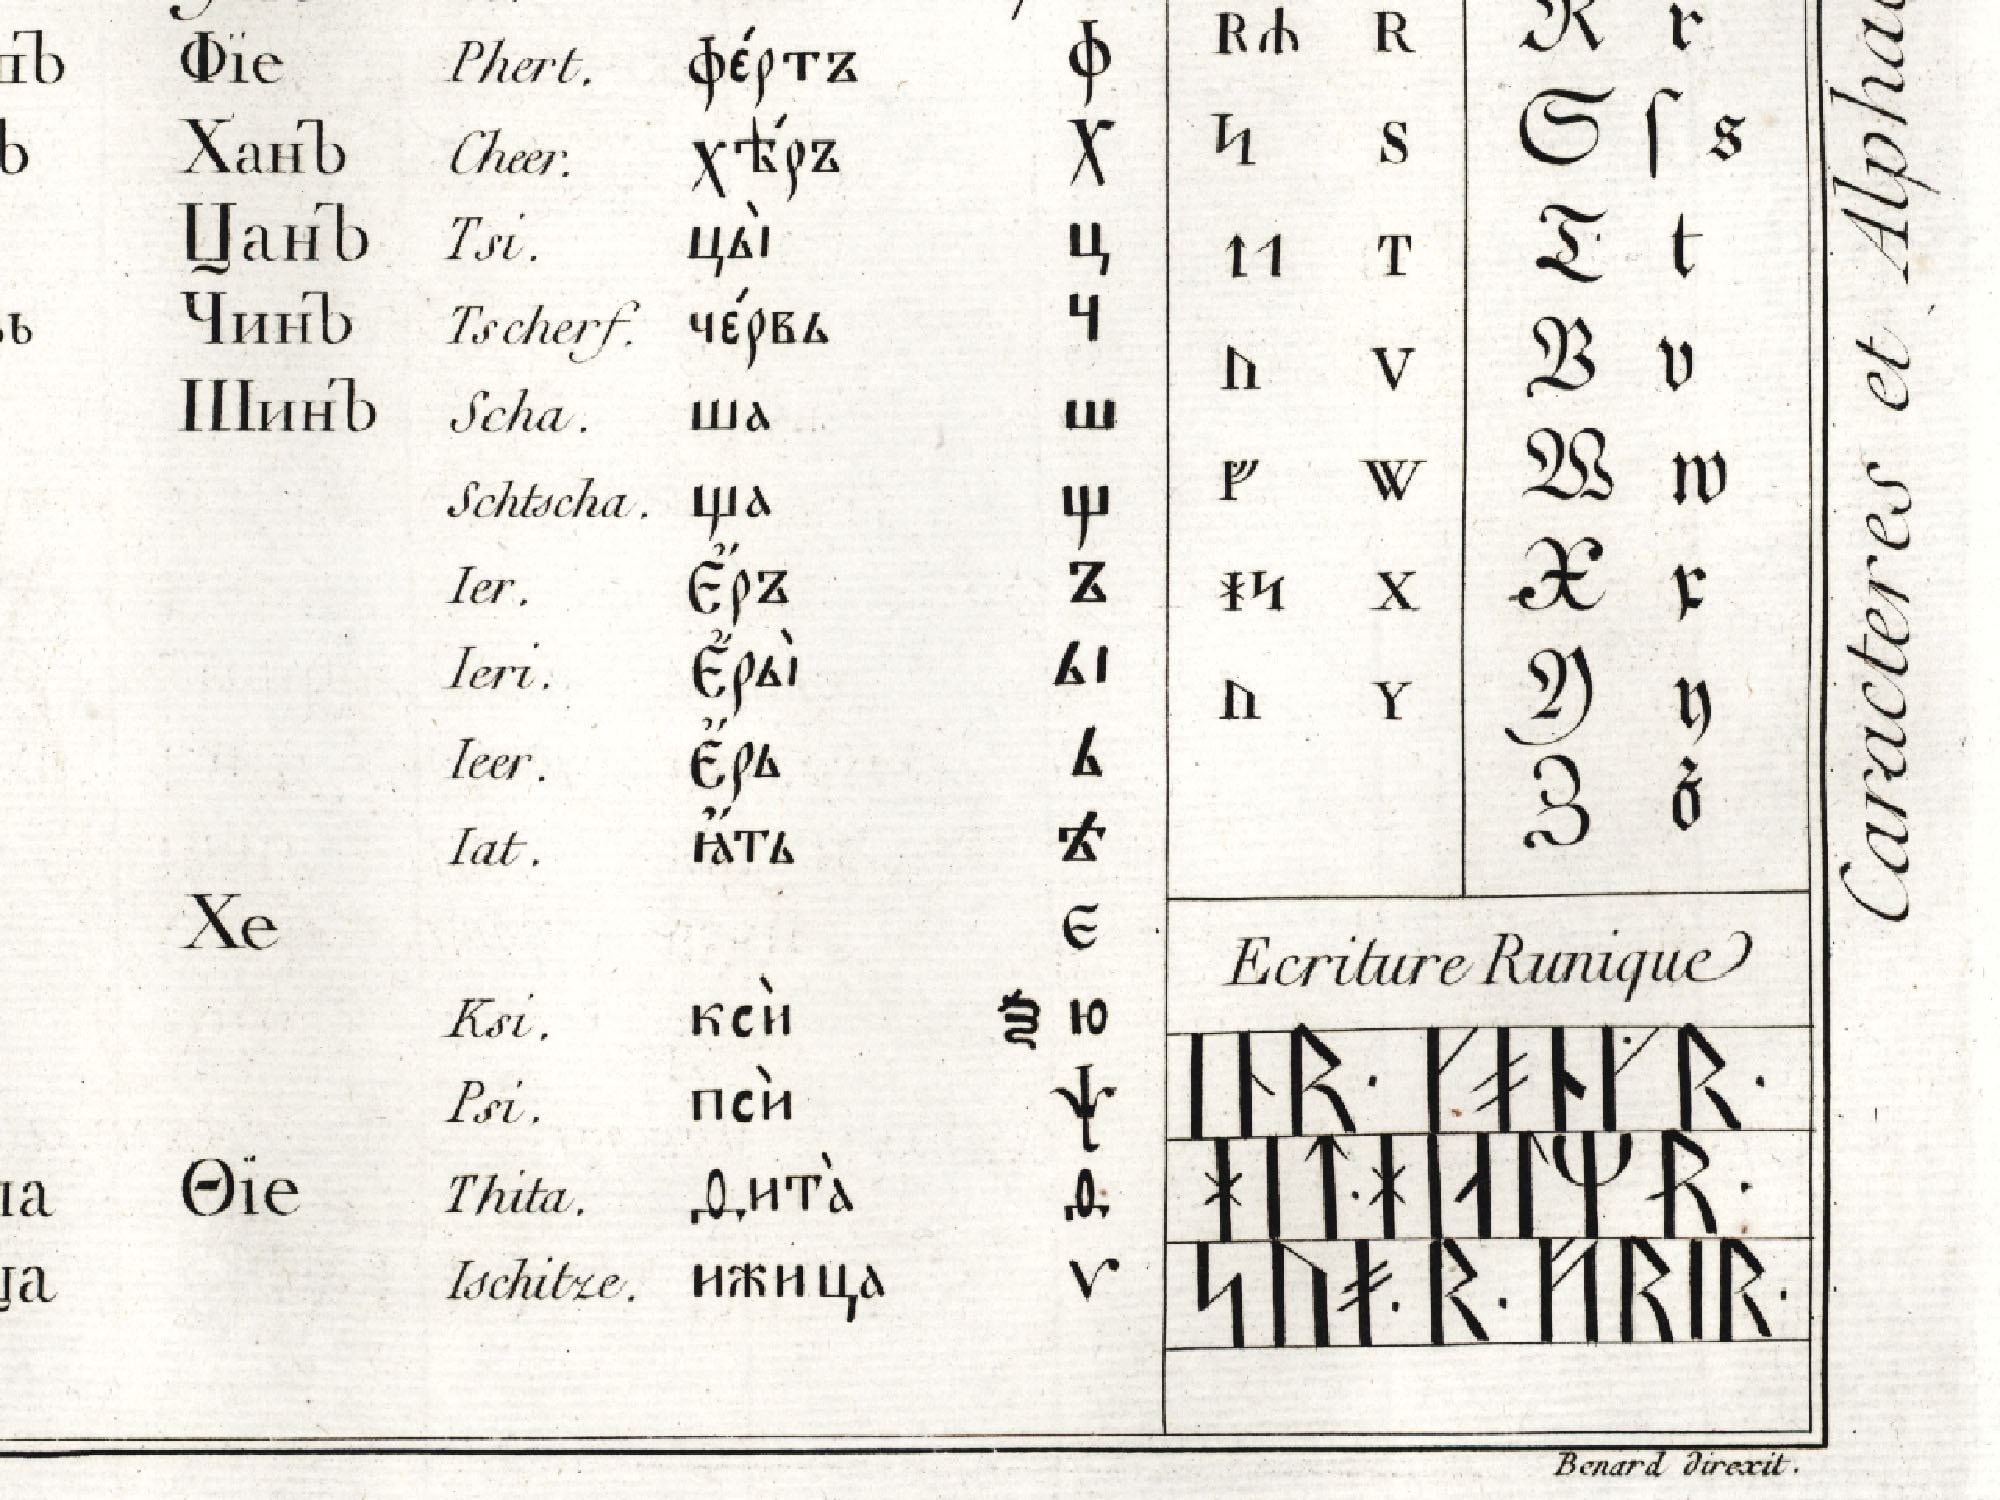 Фїе Phert. фе́ртъ ф
Ханъ Cheer. хѣ́ръ Х
Цанъ Tsi. цы̀ ц
Чинъ Tscherf. че́рвь ч
Шинъ Scha. ша ш
Schtscha. ща щ
Ier. Є҆́ръ ъ
Ieri. Є҆́ры̀ ы
Ieer. Є҆́рь ь
Iat. ꙗ҆́ть ѣ
Хе є
Ksi. ксѝ ѯ ю
Psi. псѝ ѱ
Ѳїе Thita. ѳита̀ ѳ
Ischitze. ижица ѵ
R R
ᛋ S
ᛏᛐ T
ᚢ V
ᚠ W
ᚼᛋ X
ᚢ Y
ℜ r
𝔖 ſ s
𝔗 t
𝔙 v
𝔚 w
𝔛 x
𝔜 y
ℨ z
Ecriture Runique
Caracteres et
Benard direxit.